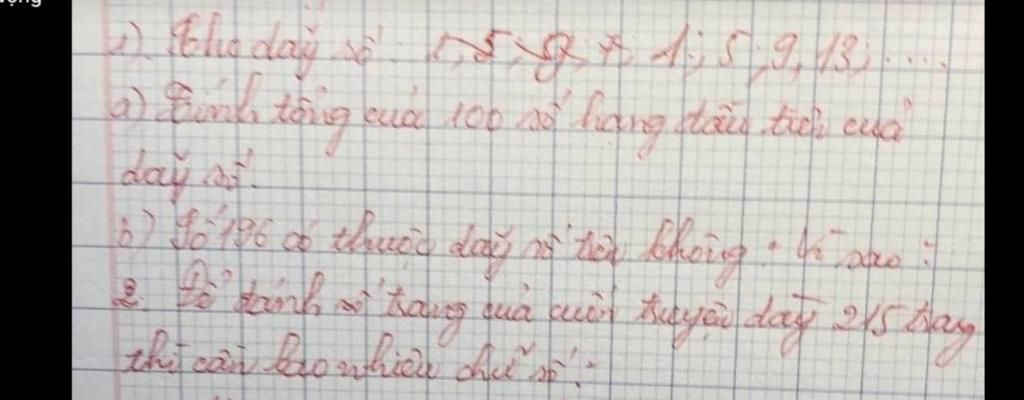 ộng
1) Cho dãy số: 1; 5; 9; 13; ....
a) Tính tổng của 100 số hạng đầu tiên của
dãy số.
b) Số 196 có thuộc dãy số trên không? Vì sao?
2. Để đánh số trang quả cuốn truyện dày 215 trang
thì cần bao nhiêu chữ số?